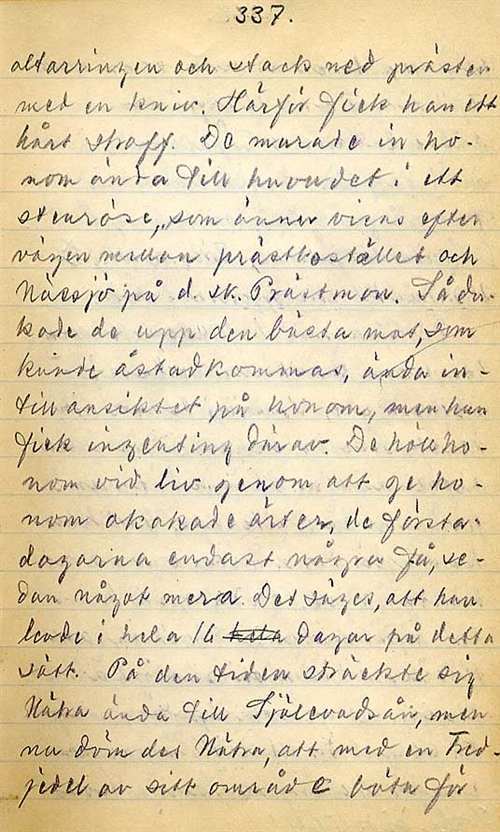 337.
altarringen och stack ned prästen
med en kniv. Härför fick han ett
hårt straff. De murade in ho-
nom ända till huvudet i ett
stenröse, som ännu vises efter
vägen mellan prästbostället och
Näsjö på d. sk. Prästmon. Så du-
kade de upp den bästa mat, som
kunde åstadkommas, ända in-
till ansiktet på honom, men han
fick ingenting därav. De höll ho-
nom vid liv genom att ge ho-
nom okokade ärter, de första
dagarna endast några få, se-
dan något mera. Det säges, att han
levde i hela 16 hela dagar på detta
sätt. På den tiden sträckte sig
Nätra ända till Själevadsån, men
nu dömdes Nätra, att med en Tred-
jedel av sitt område böta för